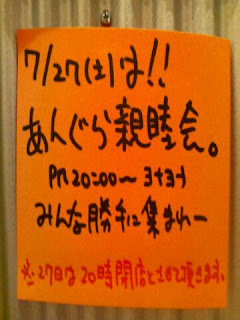 7/27(土)は!!
あんぐら親睦会。
PM 20:00〜 3ｺ3ｺ
みんな勝手に集まれー
※27日は20時開店とさせて頂きます。